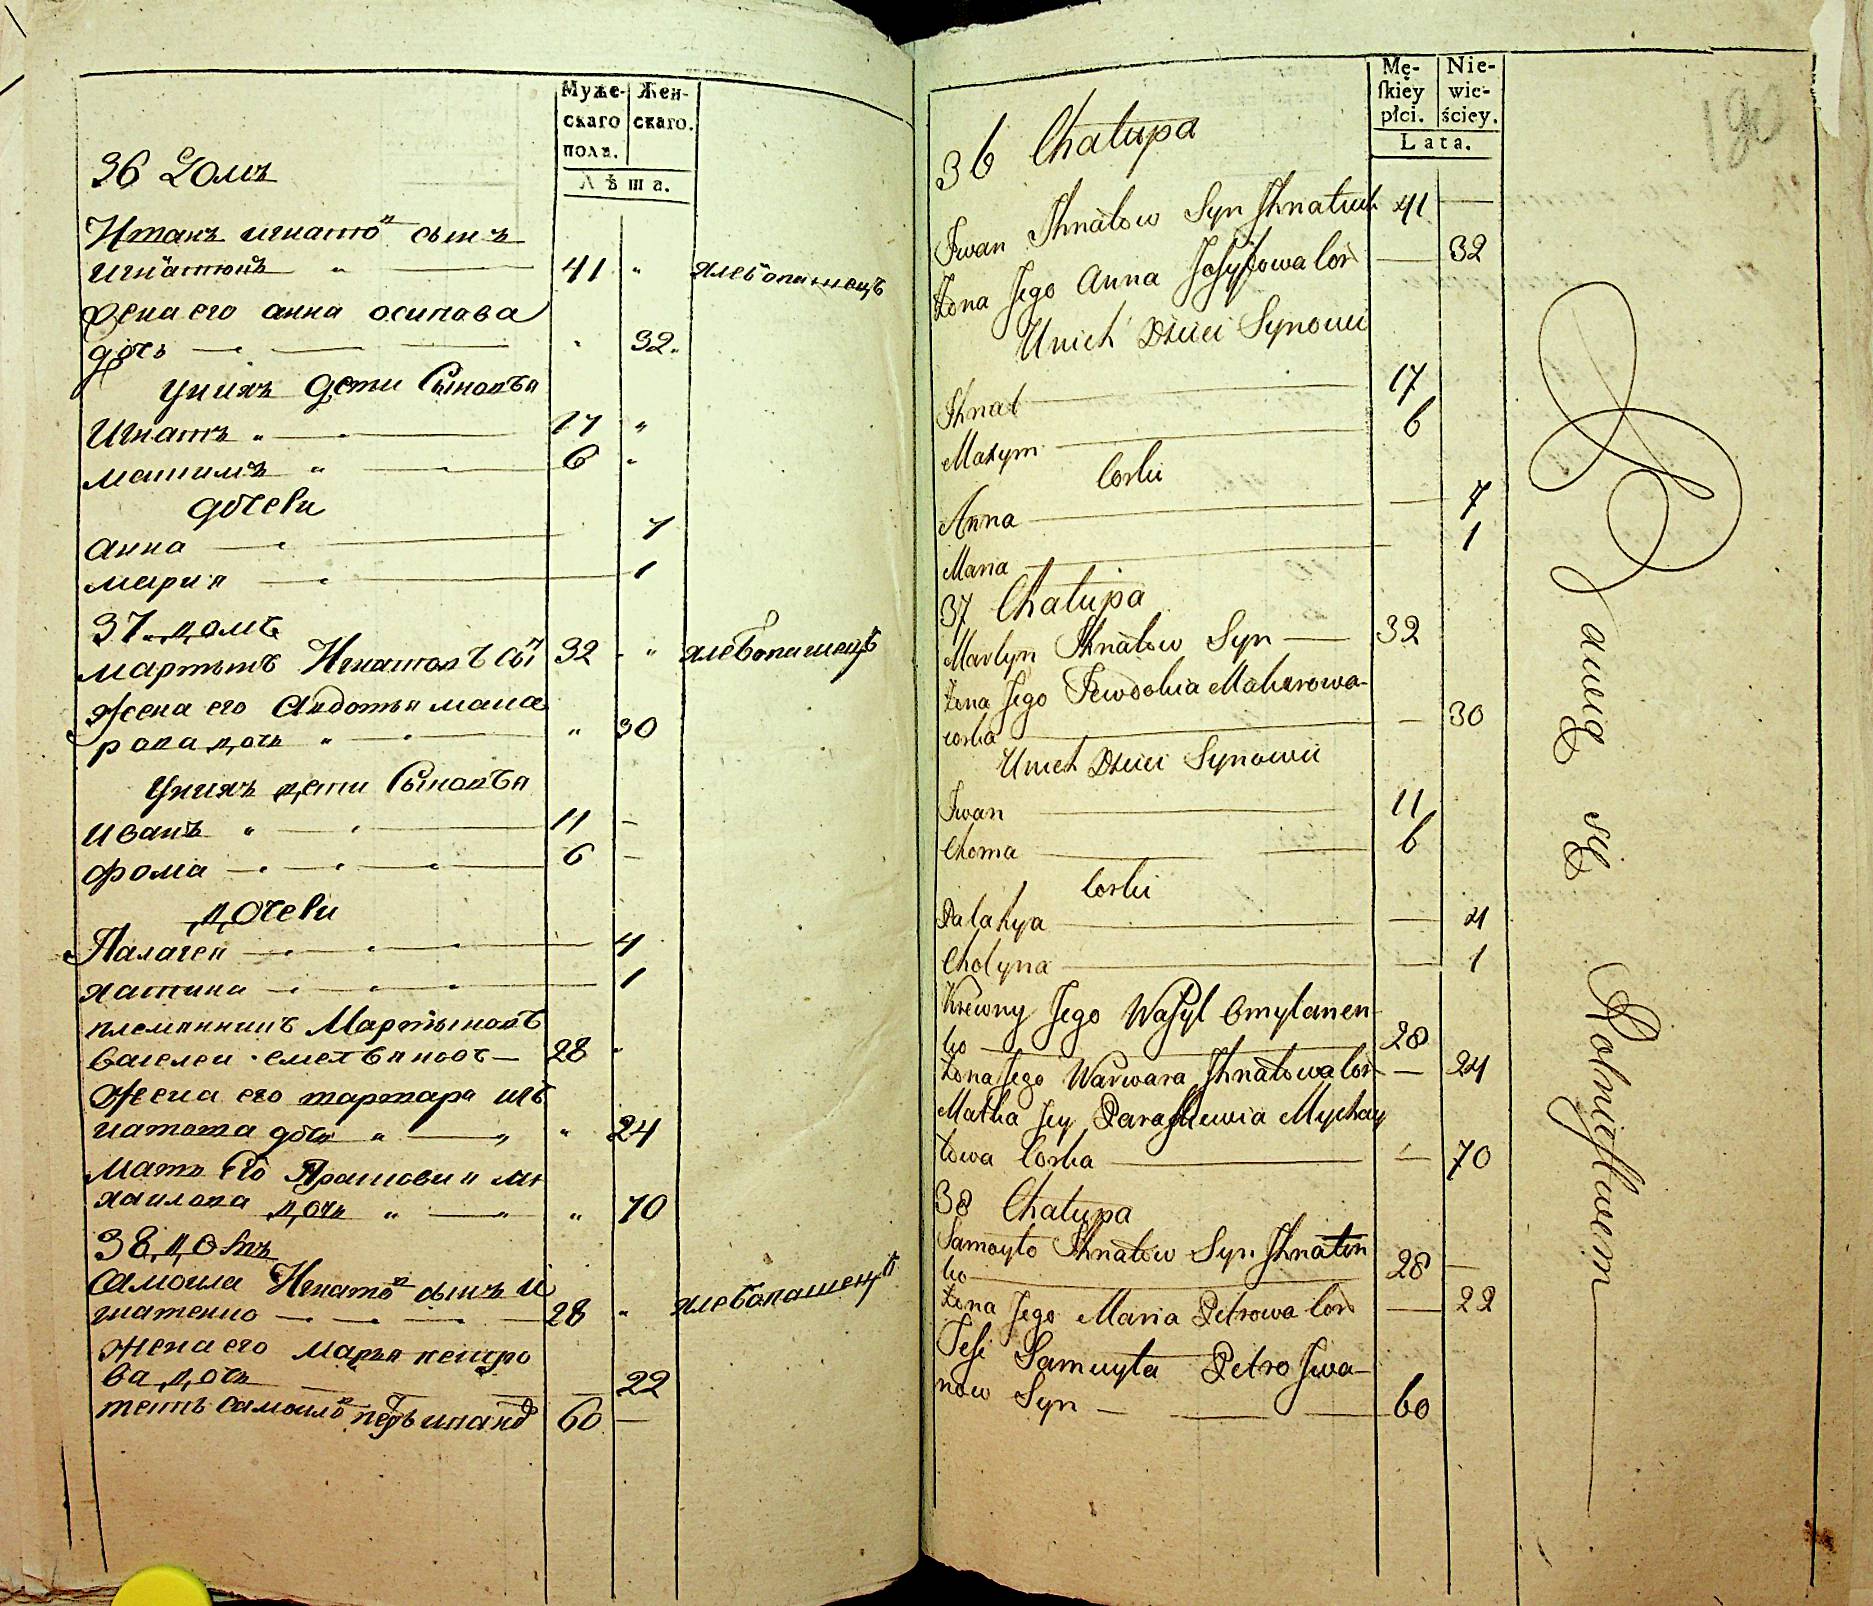 Муже-
скаго
полъ.
Жен-
скаго.
Лѣта.
36 Домъ
Иванъ игнатовъ сынъ
игнатюкъ 41 хлебопашецъ
жена его анна осипова
дочь 32.
у них дети Сыновья
Игнатъ 17
максимъ 6
дочери
анна 7
мария 1
37 домъ
мартынъ Игнатовъ сы 32 хлебопашецъ
жена его Авдотья мака
рова дочь 30
у них дети Сыновья
иванъ 11
фома 6
дочери
Палагея 4
хатина 1
племянникъ Мартыновъ
василеи 28
жена его варвара иг
натова дочь 24
мать его Прасковия ми
хаилова дочь 70
38 домъ
Самоила Игнатовъ сынъ и
гнатенко 28 хлебопашецъ
жена его марья петро
ва дочь 22
тесть самоиловъ петръ ивановъ 60
Mę-
ſkiey
płci.
Nie-
wie-
ściey.
Lata.
190
36 Chałupa
Jwan Jhnatow Syn Jhnatiuk 41
Żona Jego Anna Josypowa Cor 32
U nich Dzieci Synowi
Jhnat 17
Maxym 6
Corki
Anna 7
Maria 1
37 Chałupa
Martyn Jhnatow Syn 32
Żona Jego Jewdokia Makarowa
corka 30
U nich Dzieci Synowii
Jwan 11
Choma 6
Corki
Palahya 4
Chotyna 1
Krewny Jego Wasyl Omylanen
ko 28
Żona Jego Warwara Jhnatowa Cor 24
Matka Jey Paraskewia Mychay
łowa Corka 70
38 Chałupa
Samoyło Jhnatow Syn Jhnaten
ko 28
Żona Jego Maria Petrowa Cor 22
Teść Samuyła Petro Jwa
now Syn 60
Bawią się Rolnictwem